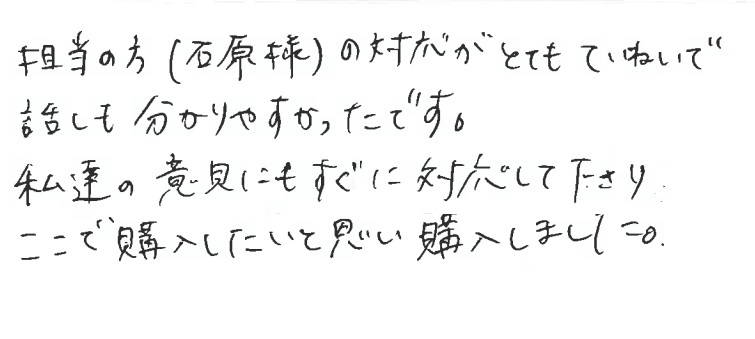 担当の方(石原様)の対応がとてもていねいで
話しも分かりやすかったです。
私達の意見にもすぐに対応して下さり
ここで購入したいと思い購入しました。